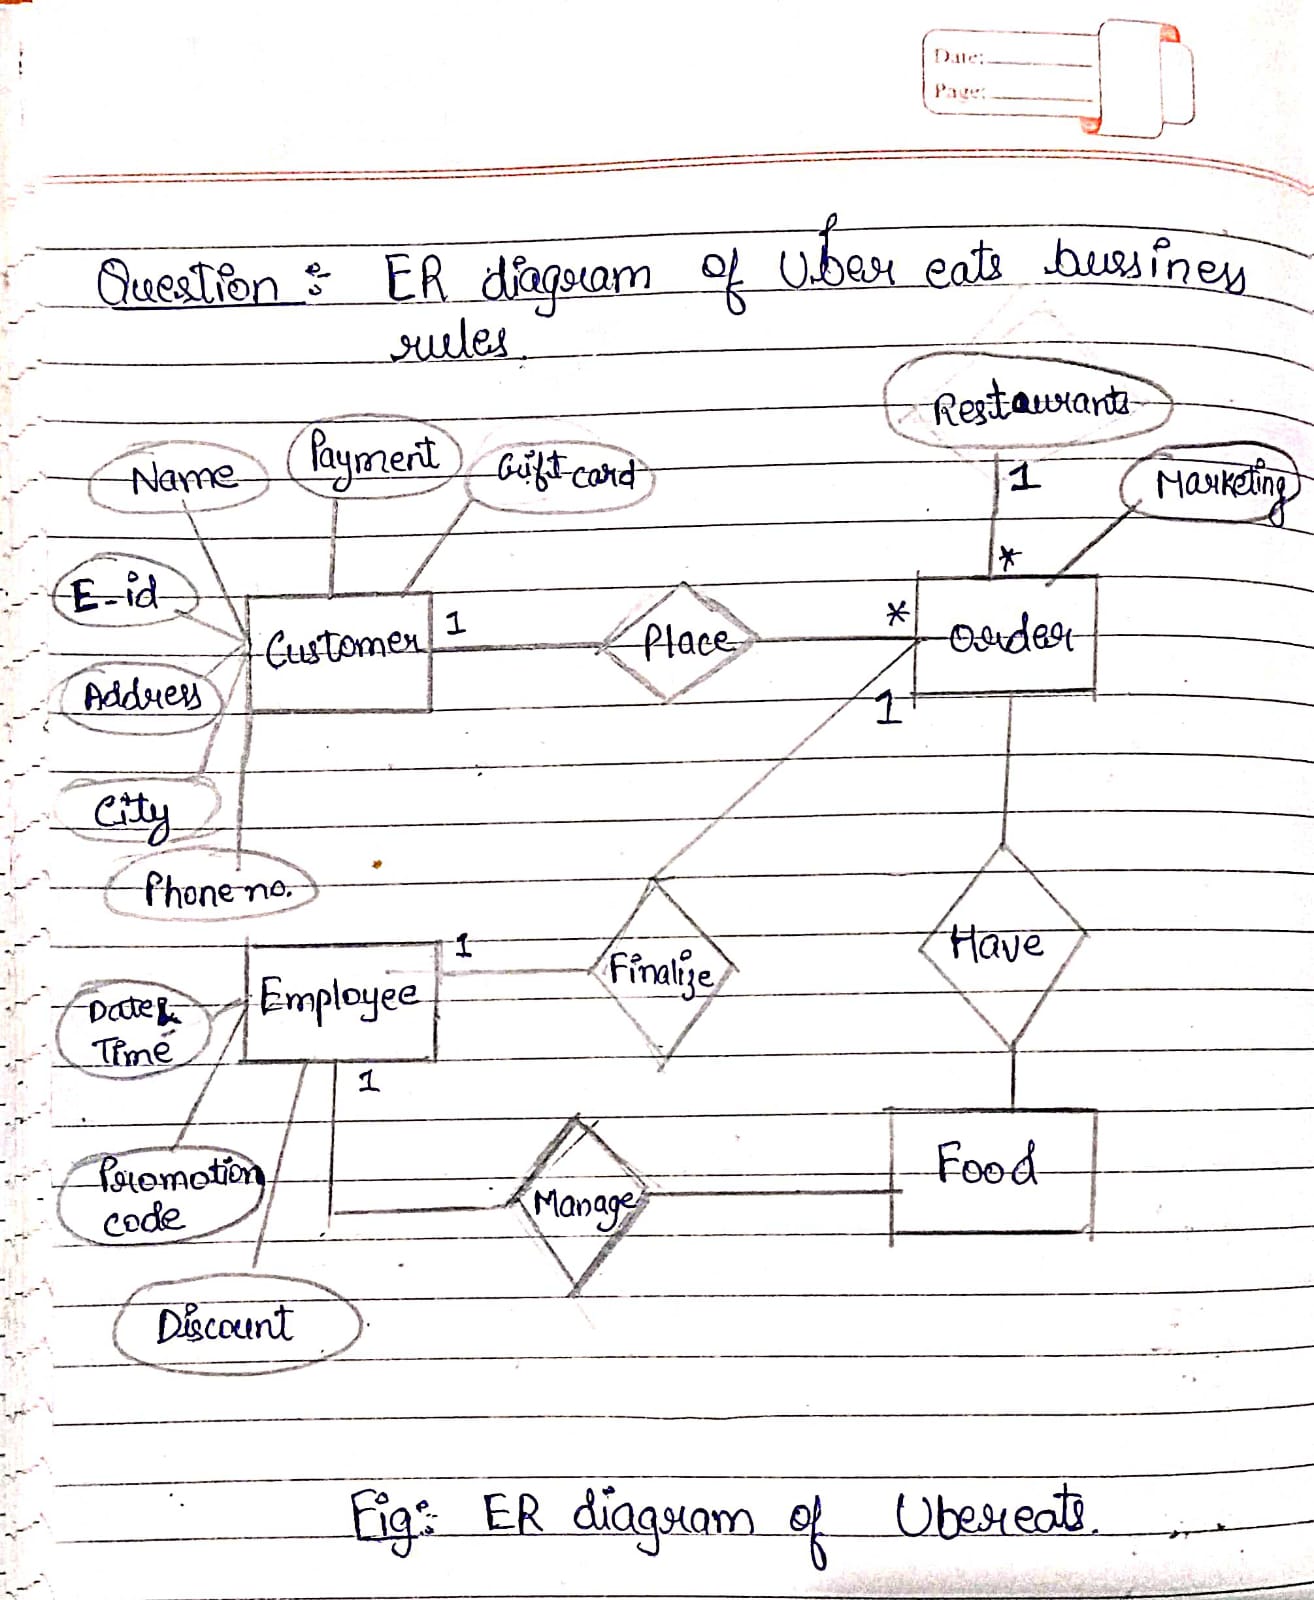 Date:
Page:
Question :- ER diagram of Uber eats bussiness
rules.
Restaurants
Name
Payment
Gift card
1
Marketing
*
E-id
Customer
1
Place
*
Order
Address
1
City
Phone no.
Employee
1
Finalize
Have
Date &
Time
1
Promotion
code
Manage
Food
Discount
Fig:- ER diagram of Ubereats.